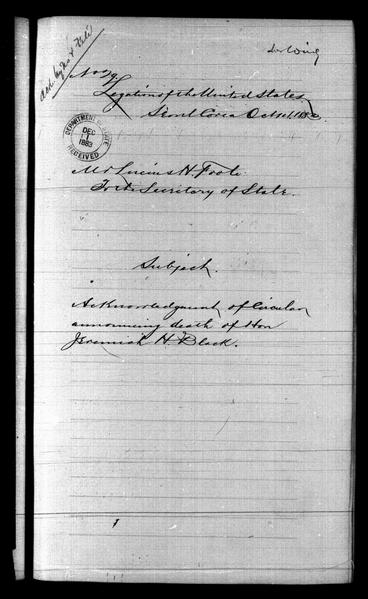 No 29
Legation of the United States
Seoul Corea Oct 1883
DEPARTMENT OF STATE
DEC
1
1883
RECEIVED
Mr Lucius H. Foote
To the Secretary of State.
Subject.
Acknowledgment of Circular
announcing death of Hon
Jeremiah H. Black.